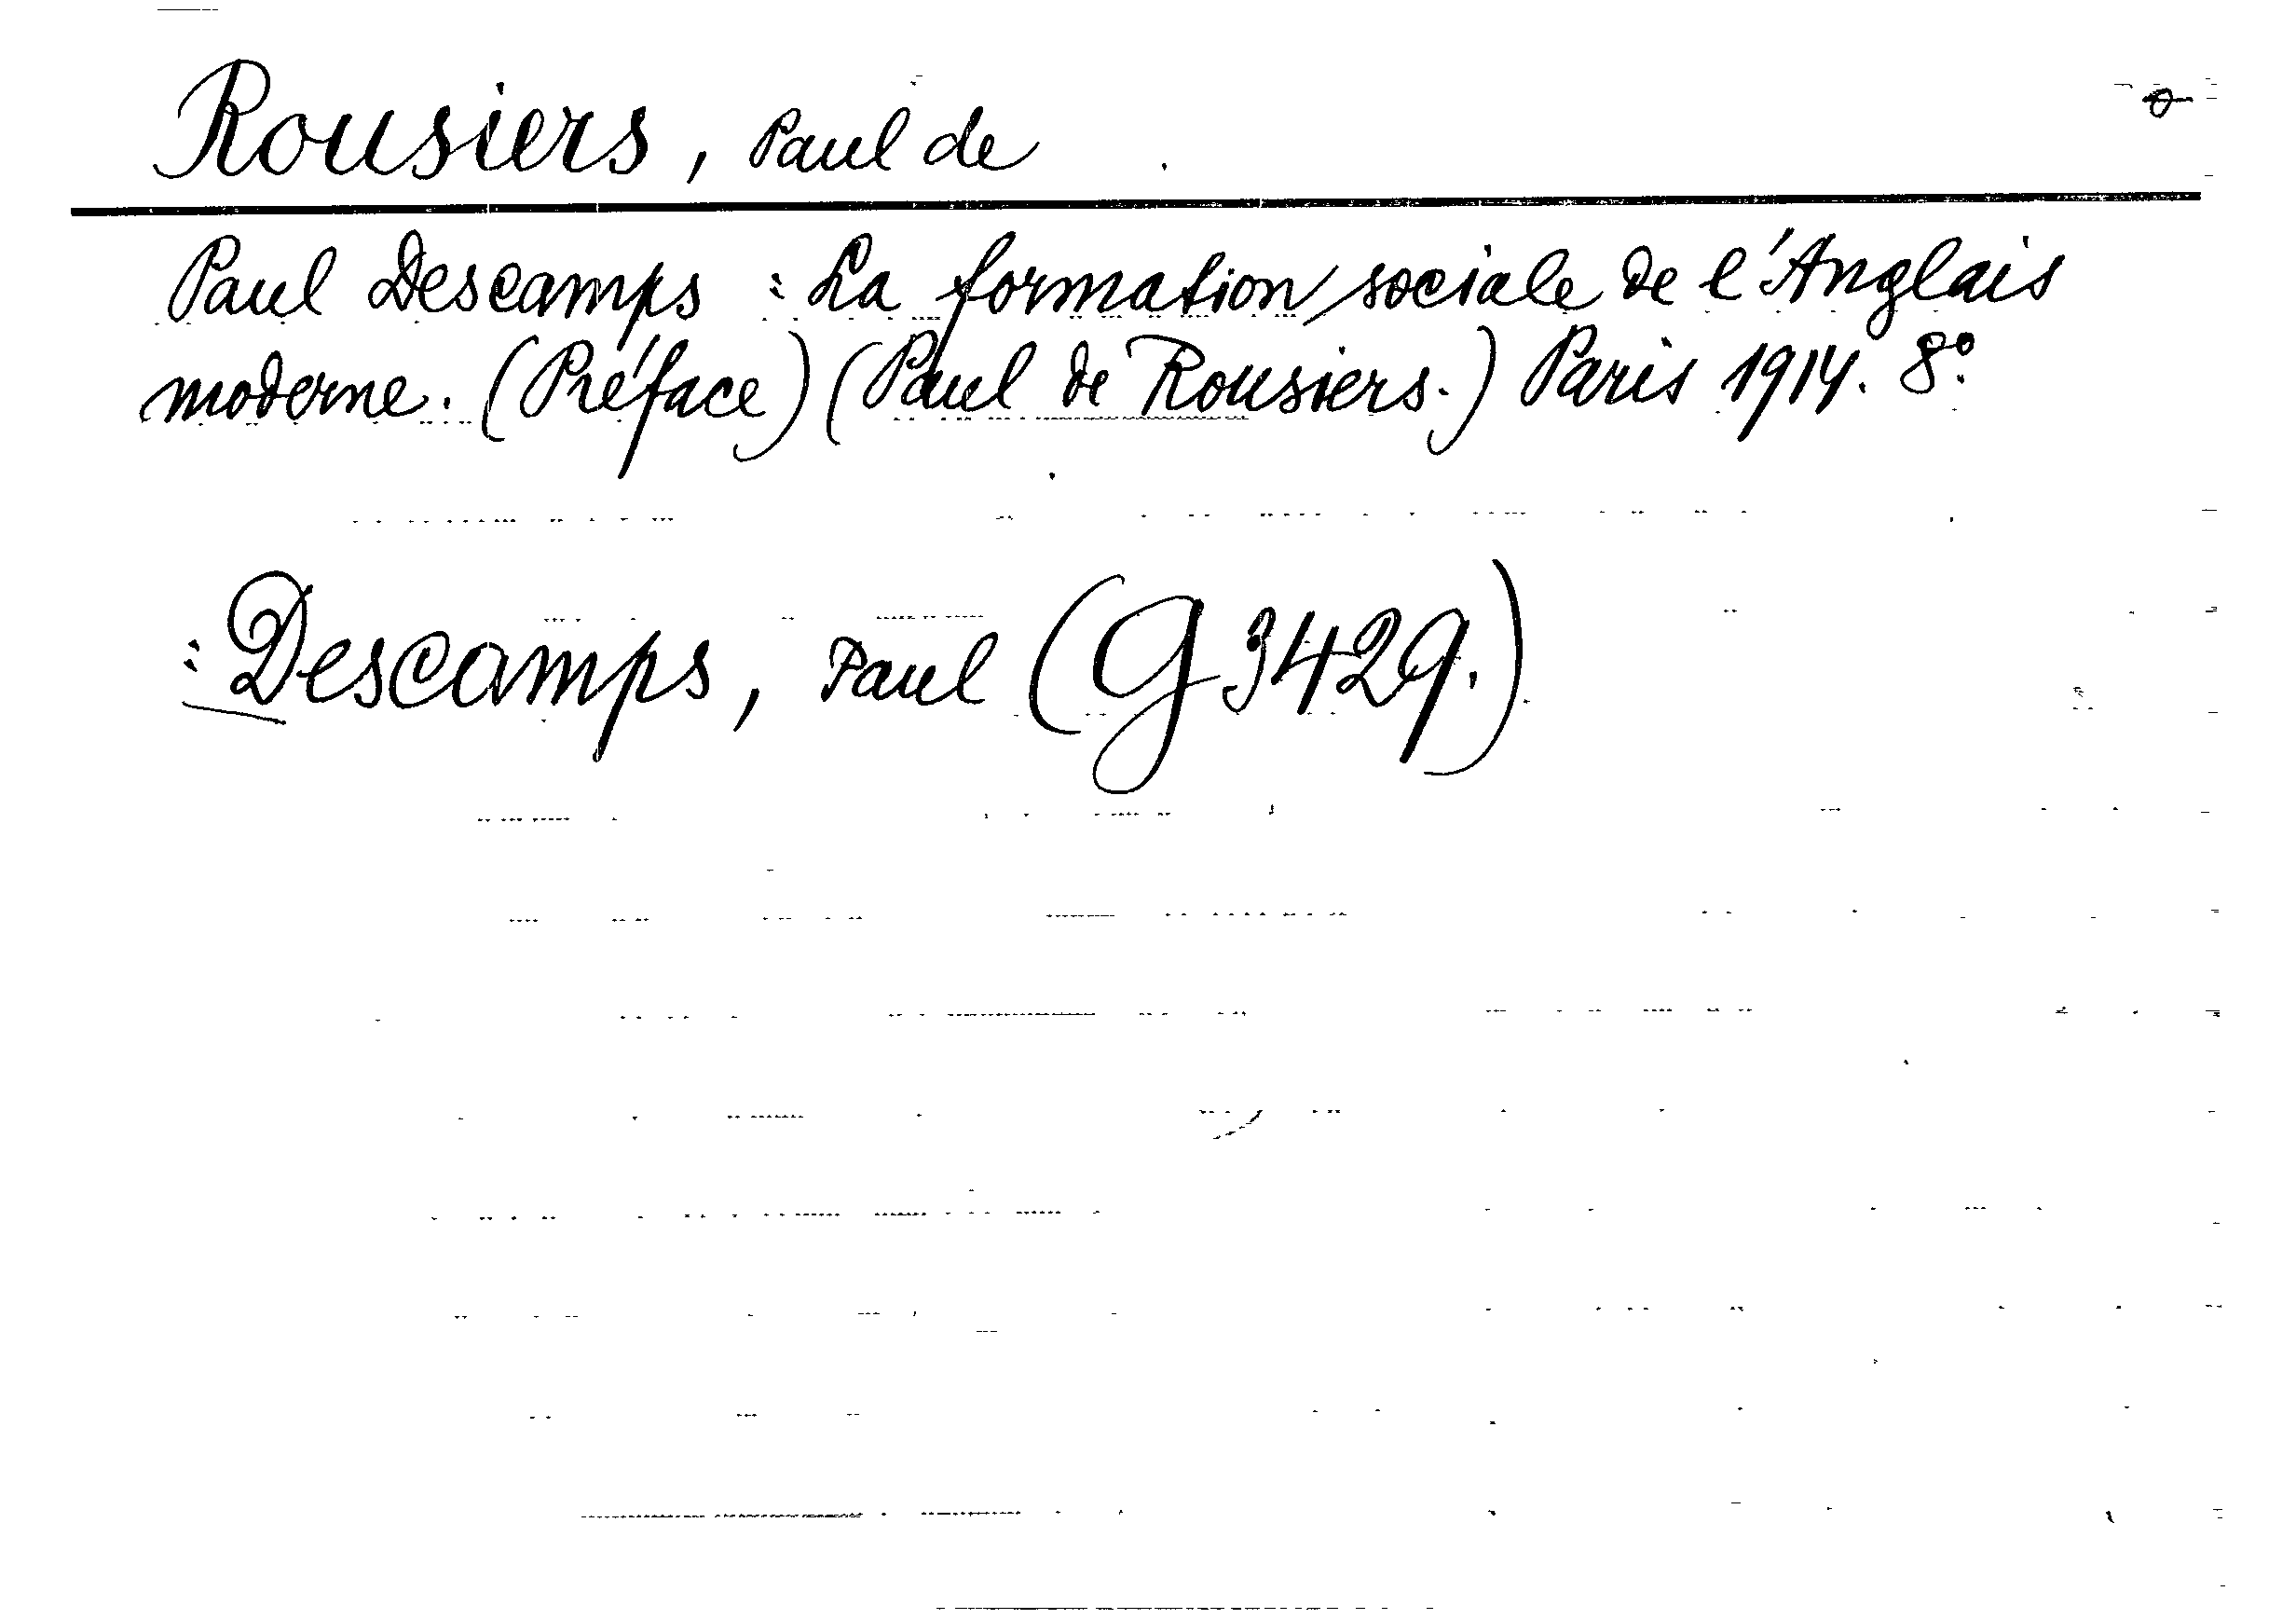 Rousiers, Paul de
Paul Descamps : La formation sociale de l'Anglais
moderne. (Préface) (Paul de Rousiers.) Paris 1914. 8°.
: Descamps, Paul (G 3429.)